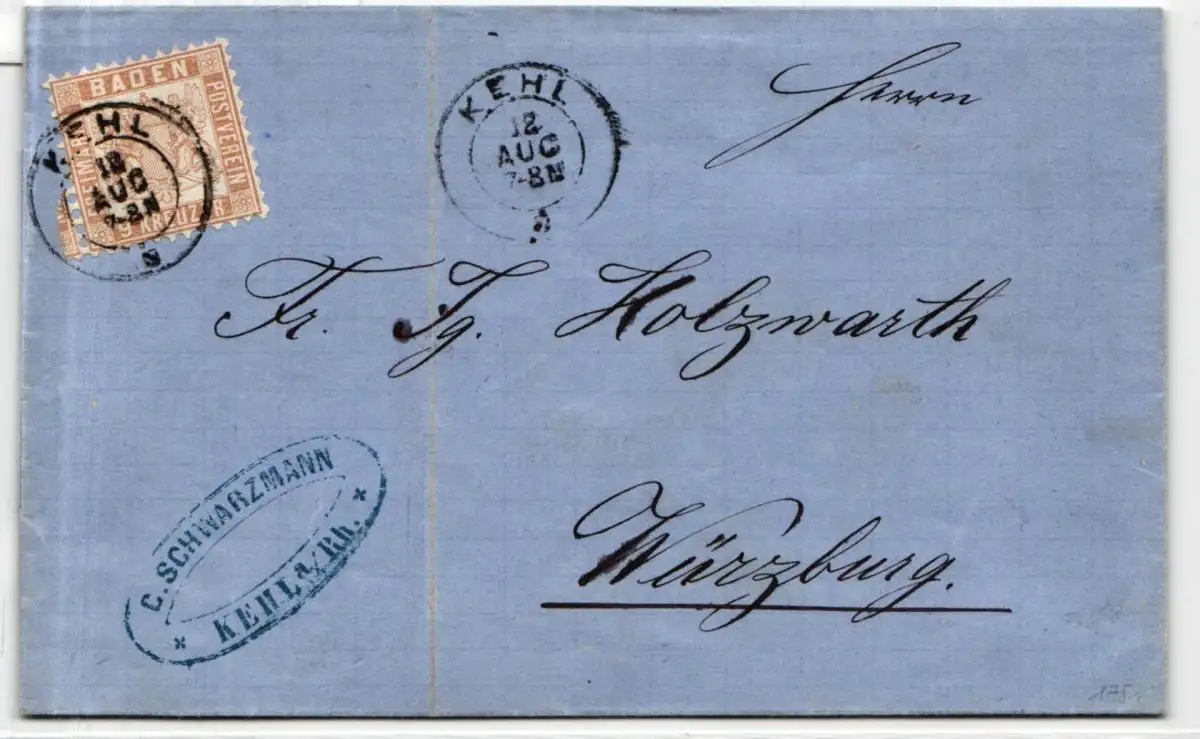 BADEN
POSTVEREIN
9 KREUZER
KEHL
12
AUG
7-8N
KEHL
12
AUG
7-8N
Herrn
Fr. Jg. Holzwarth
Würzburg.
C. SCHWARZMANN
KEHL a/Rh.
175.